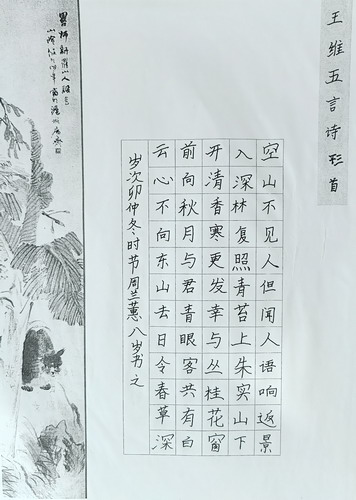 王维五言诗首
空山不见人但闻人语响返景
入深林复照青苔上朱实山下
开清香寒更发幸与丛桂花窗
前向秋月与君青眼客共有白
云心不向东山去日令春草深
岁次卯仲冬时节周兰蕙八岁书之